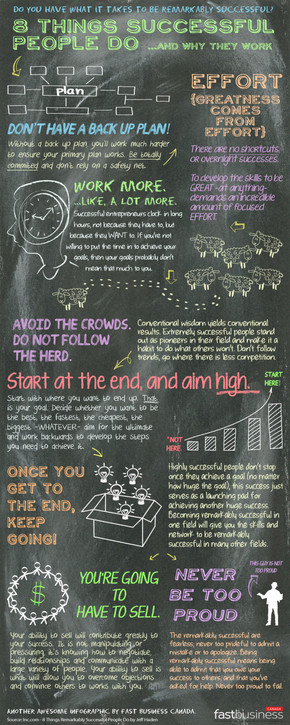 DO YOU HAVE WHAT IT TAKES TO BE REMARKABLY SUCCESSFUL?
8 THINGS SUCCESSFUL
PEOPLE DO ...AND WHY THEY WORK
plan
DON'T HAVE A BACK UP PLAN!
Without a back up plan you'll work much harder
to ensure your primary plan works. Be totally
committed and don't rely on a safety net.
EFFORT
{GREATNESS
COMES
FROM
EFFORT}
There are no shortcuts,
or overnight successes.
To develop the skills to be
GREAT -at anything-
demands an incredible
amount of focused
EFFORT.
WORK MORE.
...LIKE, A LOT MORE.
Successful entrepreneurs clock in long
hours, not because they have to, but
because they WANT to. If you're not
willing to put the time in to achieve your
goals, then your goals probably don't
mean that much to you.
AVOID THE CROWDS.
DO NOT FOLLOW
THE HERD.
Conventional wisdom yields conventional
results. Extremely successful people stand
out as pioneers in their field and make it a
habit to do what others won't. Don't follow
trends, go where there is less competition.
Start at the end, and aim high.
START
HERE!
Start with where you want to end up. That
is your goal. Decide whether you want to be
the best, the fastest, the cheapest, the
biggest -WHATEVER- aim for the ultimate
and work backwards to develop the steps
you need to achieve it.
*NOT
HERE
ONCE YOU
GET TO
THE END,
KEEP
GOING!
Highly successful people don't stop
once they achieve a goal (no matter
how huge the goal), this success just
serves as a launching pad for
achieving another huge success.
Becoming remarkably successful in
one field will give you the skills and
network to be remarkably
successful in many other fields.
$
YOU'RE GOING
TO
HAVE TO SELL.
NEVER
BE TOO
PROUD
THIS GUY IS NOT
TOO PROUD
Your ability to sell will contribute greatly to
your success. It is not manipulating or
pressuring, it is knowing how to negotiate,
build relationships and communicate with a
large variety of people. Your ability to sell is
what will allow you to overcome objections
and convince others to work with you.
The remarkably successful are
fearless, never too prideful to admit a
mistake or to apologize. Being
remarkably successful means being
able to admit that you owe your
success to others, and that you've
asked for help. Never too proud to fail.
ANOTHER AWESOME INFOGRAPHIC BY FAST BUSINESS CANADA.
Source: Inc.com - 8 Things Remarkably Successful People Do by Jeff Haden
CANADIAN
fastbusiness